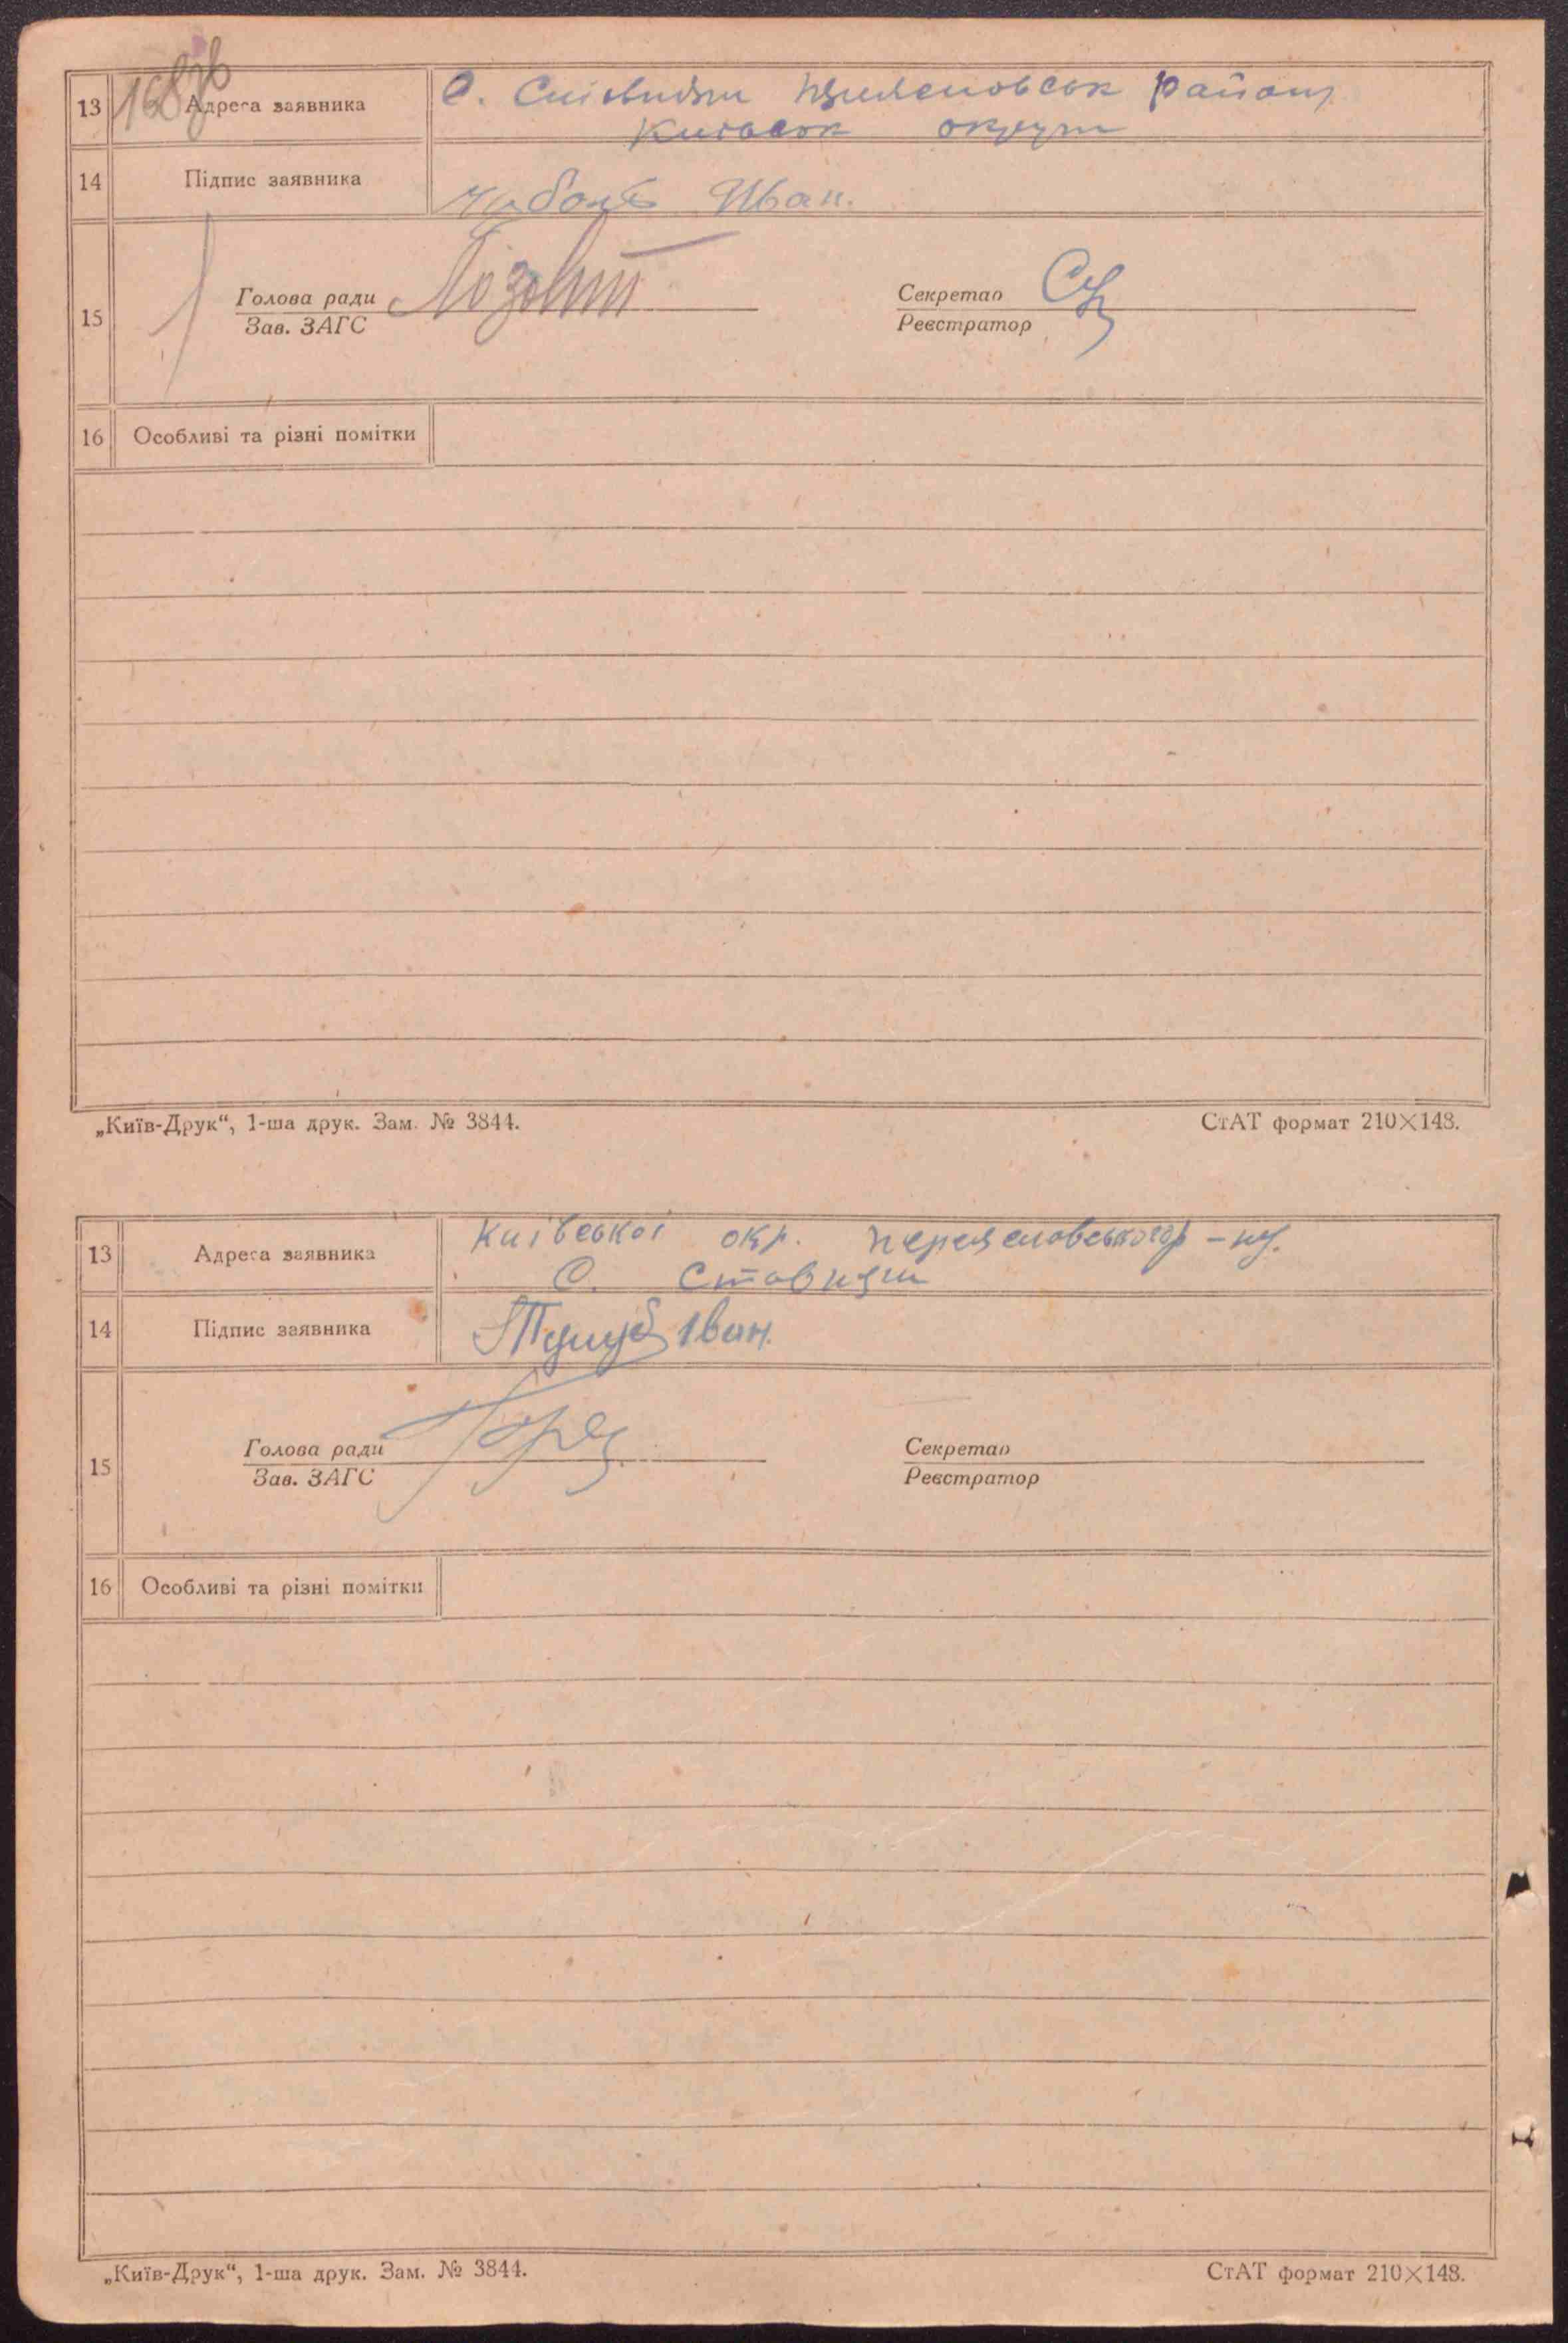 13 Адреса заявника С. району
округи
14 Підпис заявника Иван.
15 Голова ради Секретар
Зав. ЗАГС Реєстратор
16 Особливі та різні помітки
„Київ-Друк“, 1-ша друк. Зам. № 3844. СтАТ формат 210×148.
13 Адреса заявника Київської окр. р-ну.
С.
14 Підпис заявника Іван.
15 Голова ради Секретар
Зав. ЗАГС Реєстратор
16 Особливі та різні помітки
„Київ-Друк“, 1-ша друк. Зам. № 3844. СтАТ формат 210×148.